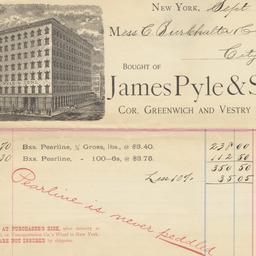 NEW YORK, Sept
Mess C. Burkhalter &
City
BOUGHT OF
James Pyle & S
COR. GREENWICH AND VESTRY
70 Bxs. Pearline, ½ Gross, lbs., @ $3.40. 238 00
30 Bxs. Pearline, - 100-6s, @ $3.75. 112 50
350 50
Less 10% 35 05
Pearline is never peddled
AT PURCHASER'S RISK, after delivery at
Transportation Co's Wharf in New York.
ARE NOT INSURED by shippers.